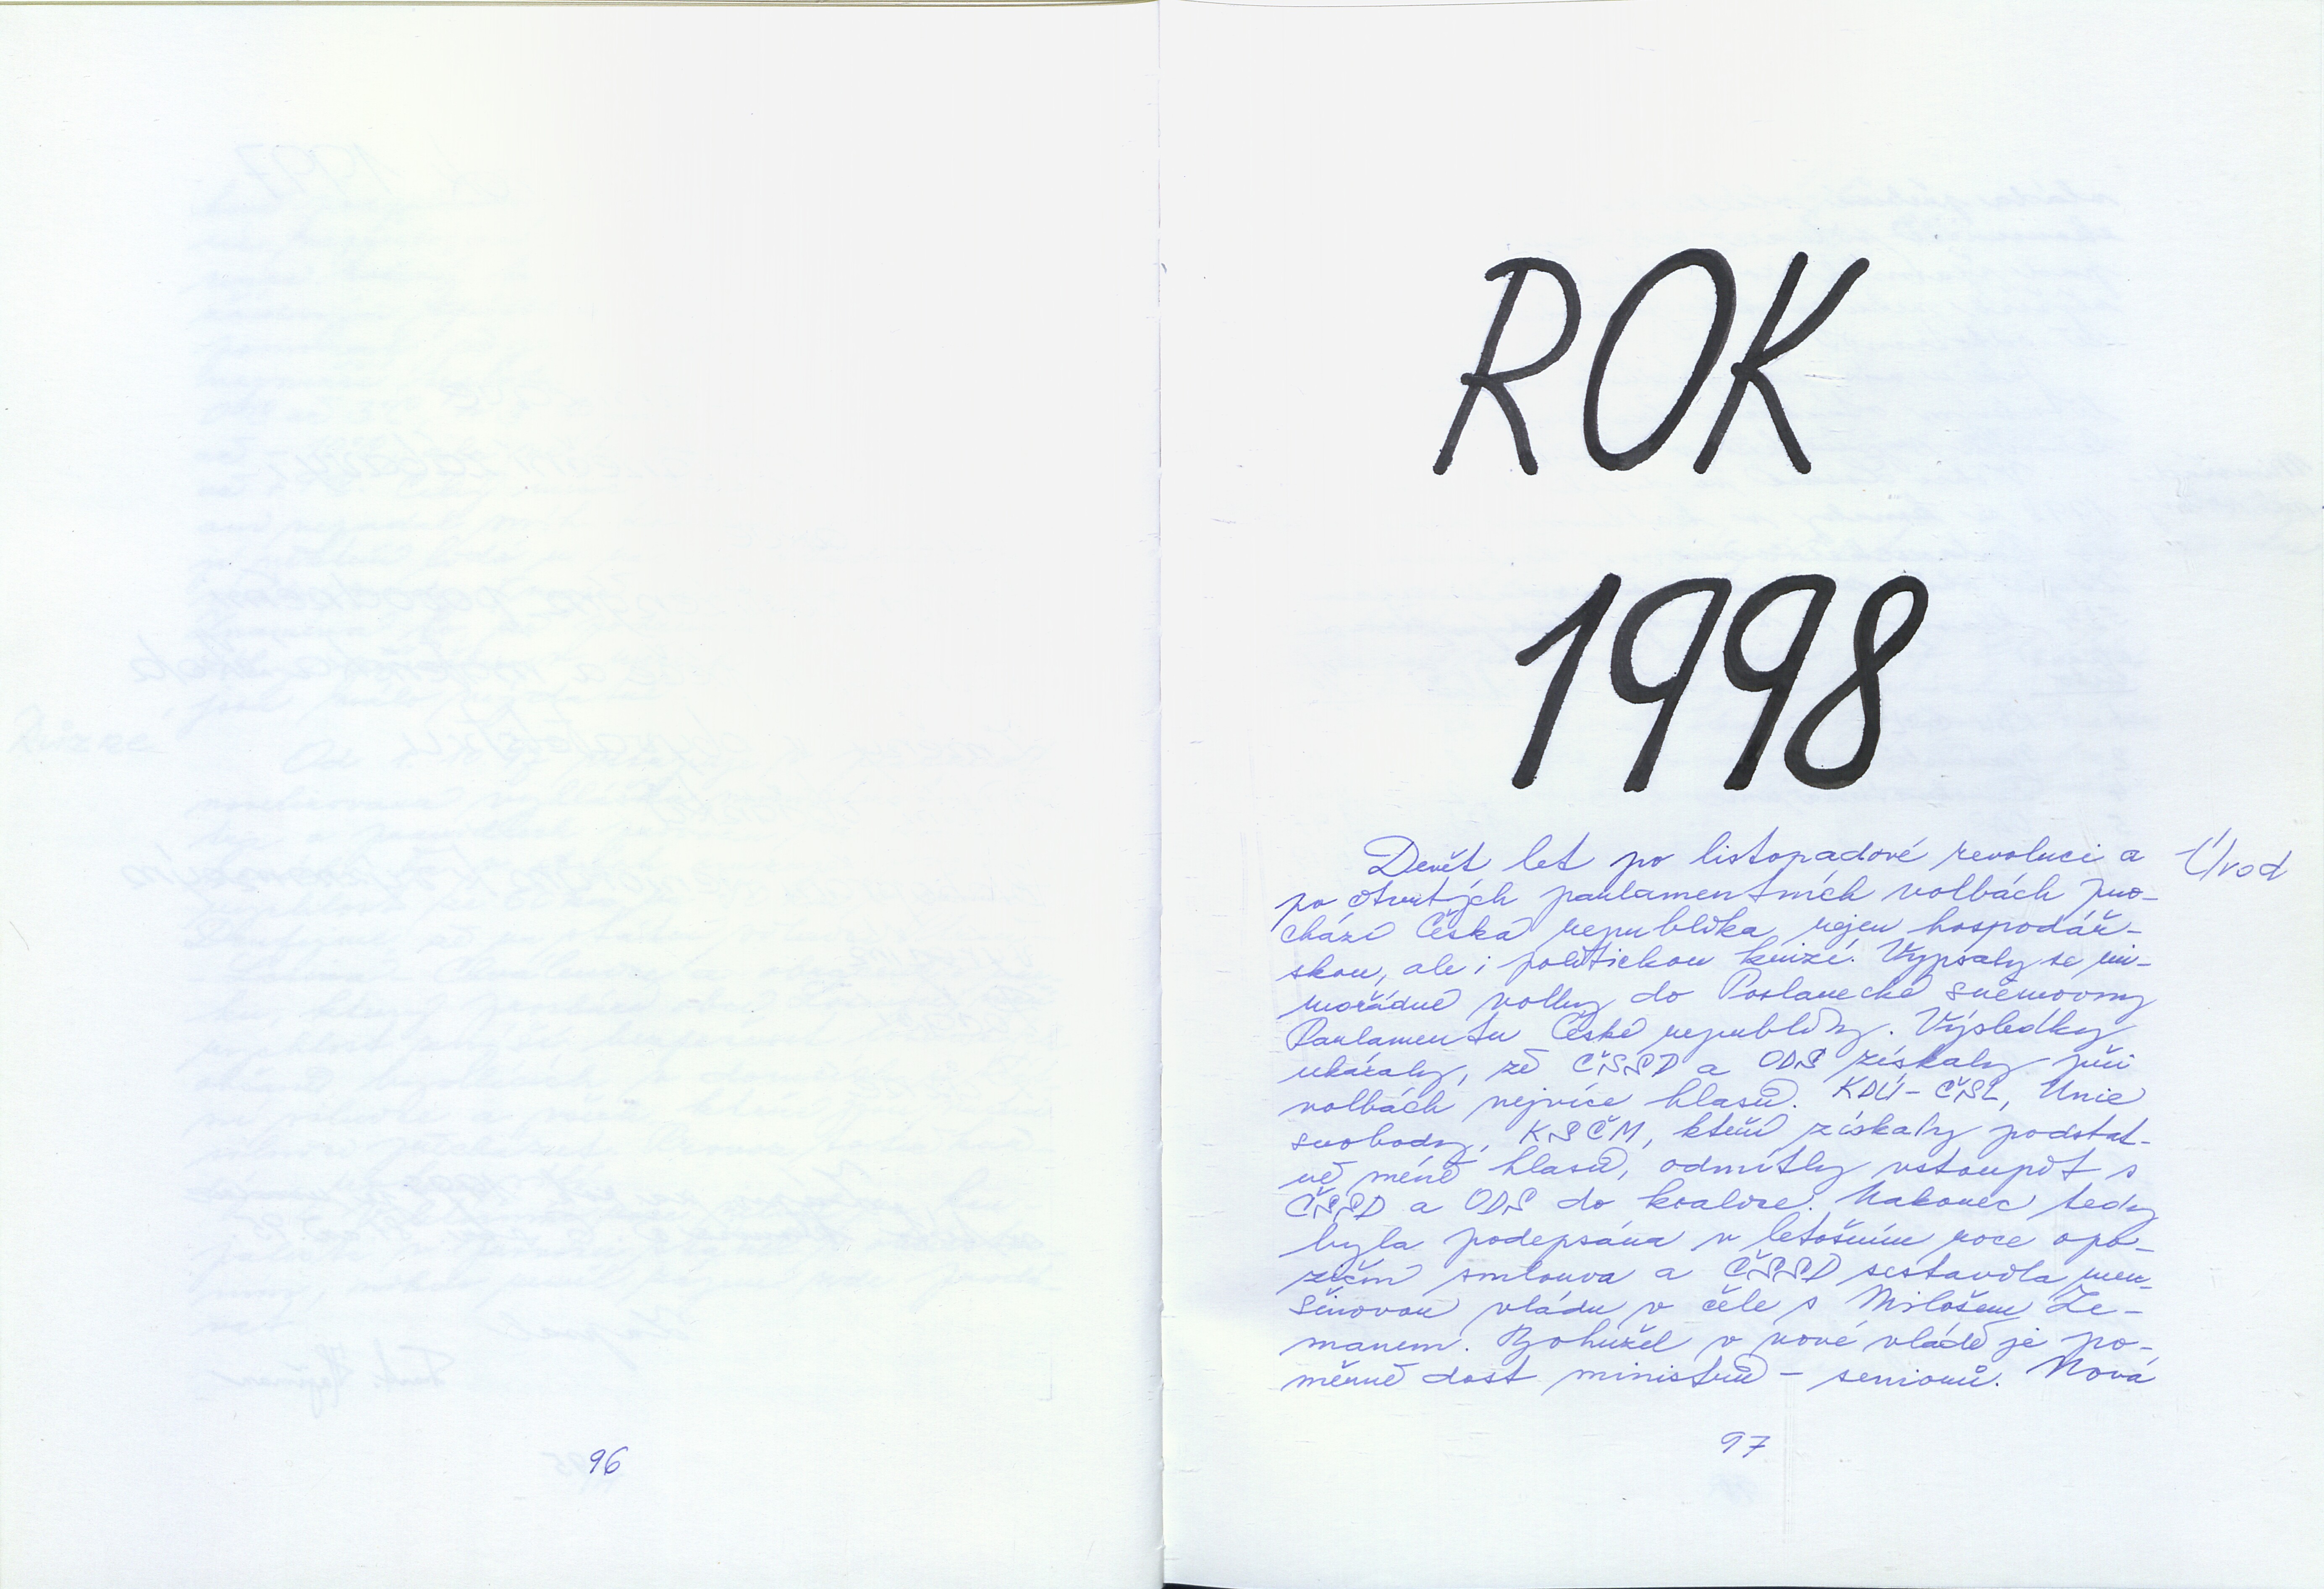 96
ROK
1998
Úvod
Devět let po listopadové revoluci a
po čtvrtých parlamentních volbách pro-
chází Česká republika nejen hospodář-
skou, ale i politickou krizí. Vypsaly se mi-
mořádné volby do Poslanecké sněmovny
Parlamentu České republiky. Výsledky
ukázaly, že ČSSD a ODS získaly při
volbách nejvíce hlasů. KDU-ČSL, Unie
svobody, KSČM, kteří získaly podstat-
ně méně hlasů, odmítly vstoupit s
ČSSD a ODS do koalice. Nakonec tedy
byla podepsána v letošním roce opo-
ziční smlouva a ČSSD sestavila men-
šinovou vládu v čele s Milošem Ze-
manem. Bohužel v nové vládě je po-
měrně dost ministrů - seniorů. Nová
97